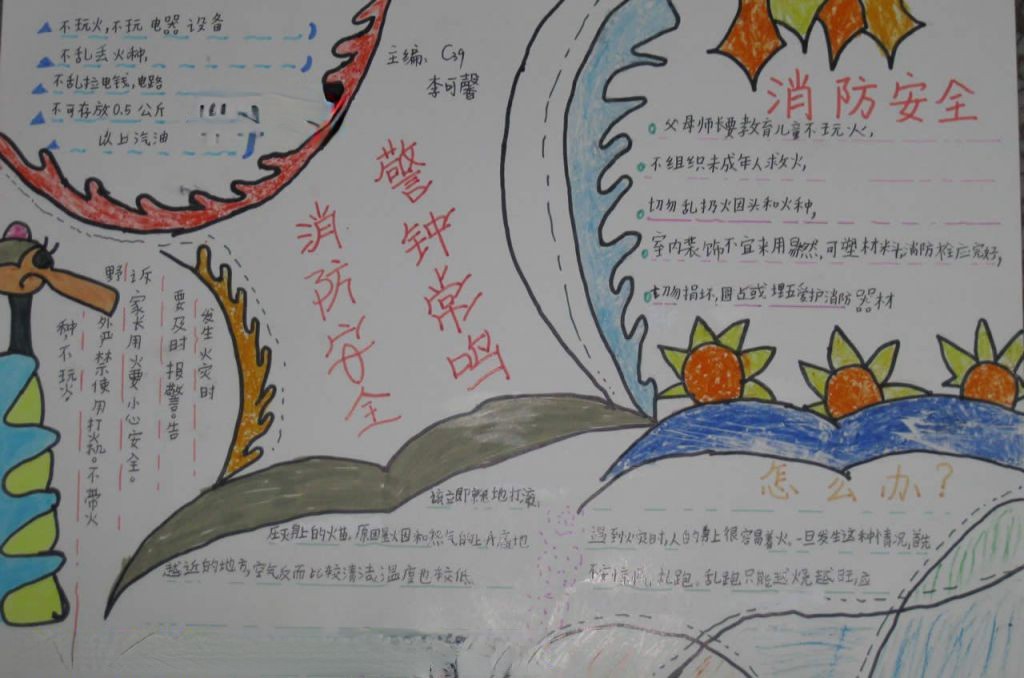 不玩火,不玩电器设备
不乱丢火种,
不乱拉电线,电路
不可存放0.5公斤
以上汽油
主编: C39
李可馨
警钟常鸣
消防安全
消防安全
父母师长要教育儿童不玩火,
不组织未成年人救火,
切勿乱扔火因头和火种,
室内装饰不宜采用易然,可塑材料,消防栓应完好,
切勿损坏,圈占或埋压爱护消防器材
发生火灾时
要及时报警。告
诉家长用火要小心安全。
野外严禁使勿打火机。不带火
种,不玩火,
怎么办?
遇到火灾时,人的身上很容易着火,一旦发生这种情况,首先
不要惊慌,乱跑,乱跑只能越烧越旺,应
该立即就地打滚,
压灭身上的火苗,原因是因和然气的上升
越近的地方,空气反而比较清洁,温度也较低